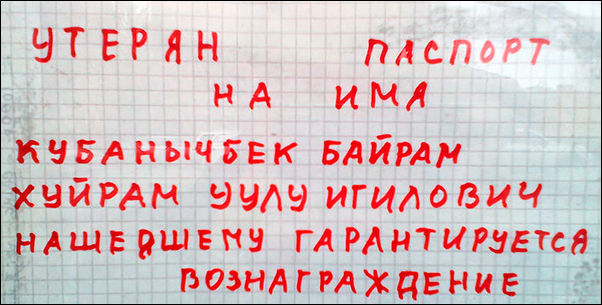 УТЕРЯН ПАСПОРТ
НА ИМА
КУБАНЫЧБЕК БАЙРАМ
ХУЙРАМ УУЛУ ИГИЛОВИЧ
НАШЕДШЕМУ ГАРАНТИРУЕТСЯ
ВОЗНАГРАЖДЕНИЕ